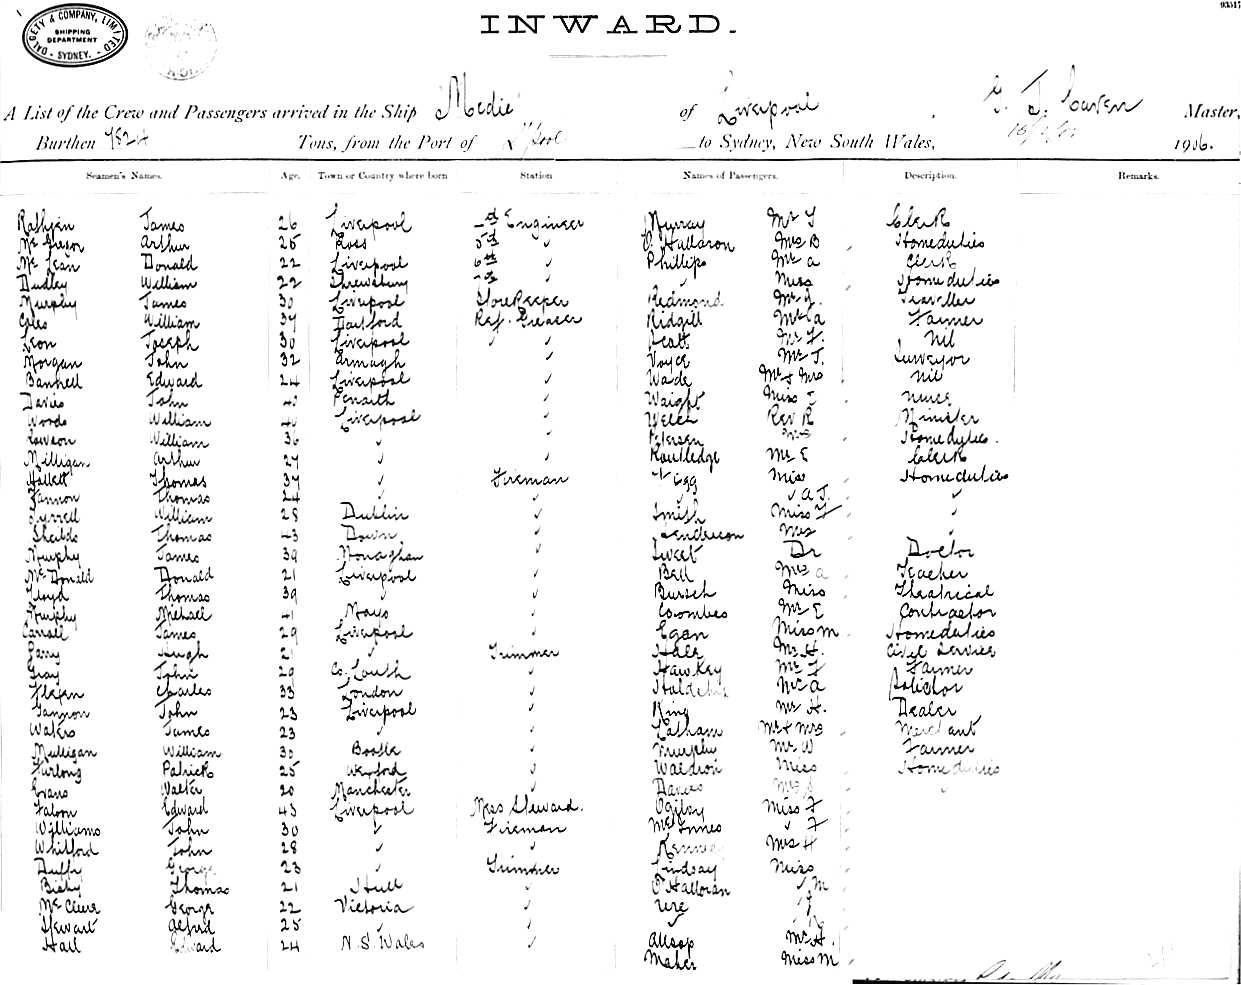 93517
DALGETY & COMPANY, LIMITED
SHIPPING DEPARTMENT
SYDNEY.
INWARD.
A List of the Crew and Passengers arrived in the Ship "Medic" of Liverpool, G. J. Master,
Burthen Tons, from the Port of L'pool to Sydney, New South Wales, 1906.
Seamen's Names. Age. Town or Country where born Station Names of Passengers. Description. Remarks.
James 26 Liverpool Engineer Murray Mr Clerk
Arthur 25 Ross 5th " O'Halloran Mrs B Homeduties
McLean Donald 22 Liverpool 6th " Phillips Mr A Clerk
Dudley William 22 Shrewsbury " " Miss Homeduties
Murphy James 30 Liverpool StoreKeeper Redmond Mr J. Traveller
Giles William 37 Dartford Ref. Greaser Ridgill Mr A Farmer
Leon Joseph 30 Liverpool " Mr F. Nil
Morgan John 32 Armagh " Voyce Mr J. Surveyor
Bannell Edward 24 Liverpool " Wade Mr & Mrs Nil
Davis John Penrith " Waight Miss J Nurse
Woods William 40 Liverpool " Welch Rev R Minister
Lawson William 36 " " Petersen Mrs Homeduties.
Milligan Arthur 27 " " Routledge Mr E Clerk
Hallett Thomas 37 " Fireman Miss Homeduties
Gannon Thomas 24 " " " " A J. "
William 28 Dublin " Smith Miss F "
Shields Thomas 43 Down " Henderson Mrs "
Murphy James 39 Monaghan " Sweet Dr Doctor
McDonald Donald 21 Liverpool " Bell Mrs A Teacher
Lloyd Thomas 39 " " Miss Theatrical
Murphy Michael 41 Mayo " Coombes Mr E Contractor
Carroll James 29 Liverpool " Egan Miss M Homeduties
Parry Hugh 21 " Trimmer Hale Mr H. Civil Service
Gray John 29 Co. Louth " Hawkey Mr F Farmer
Charles 33 London " Mr A Solicitor
Gannon John 23 Liverpool " King Mr H. Dealer
Waters James 23 " " Latham Mr & Mrs Merchant
Mulligan William 30 Bootle " Murphy Mr W Farmer
Furlong Patrick 25 Wexford " Waldron Miss Homeduties
Evans Walter 20 Manchester " Davies "
Edward 43 Liverpool Mess Steward. Ogilvy Miss F
Williams John 30 " Fireman McInnes " F
Whitford John 28 " " Kennedy Mrs H
Duffy George 23 " Trimmer Lindsay Miss
Thomas 21 Hull " O'Halloran " M
McClure George 22 Victoria " Ure "
Stewart Alfred 25 " " "
Hall Edward 24 N.S. Wales " Allsop Mr H.
Maher Miss M